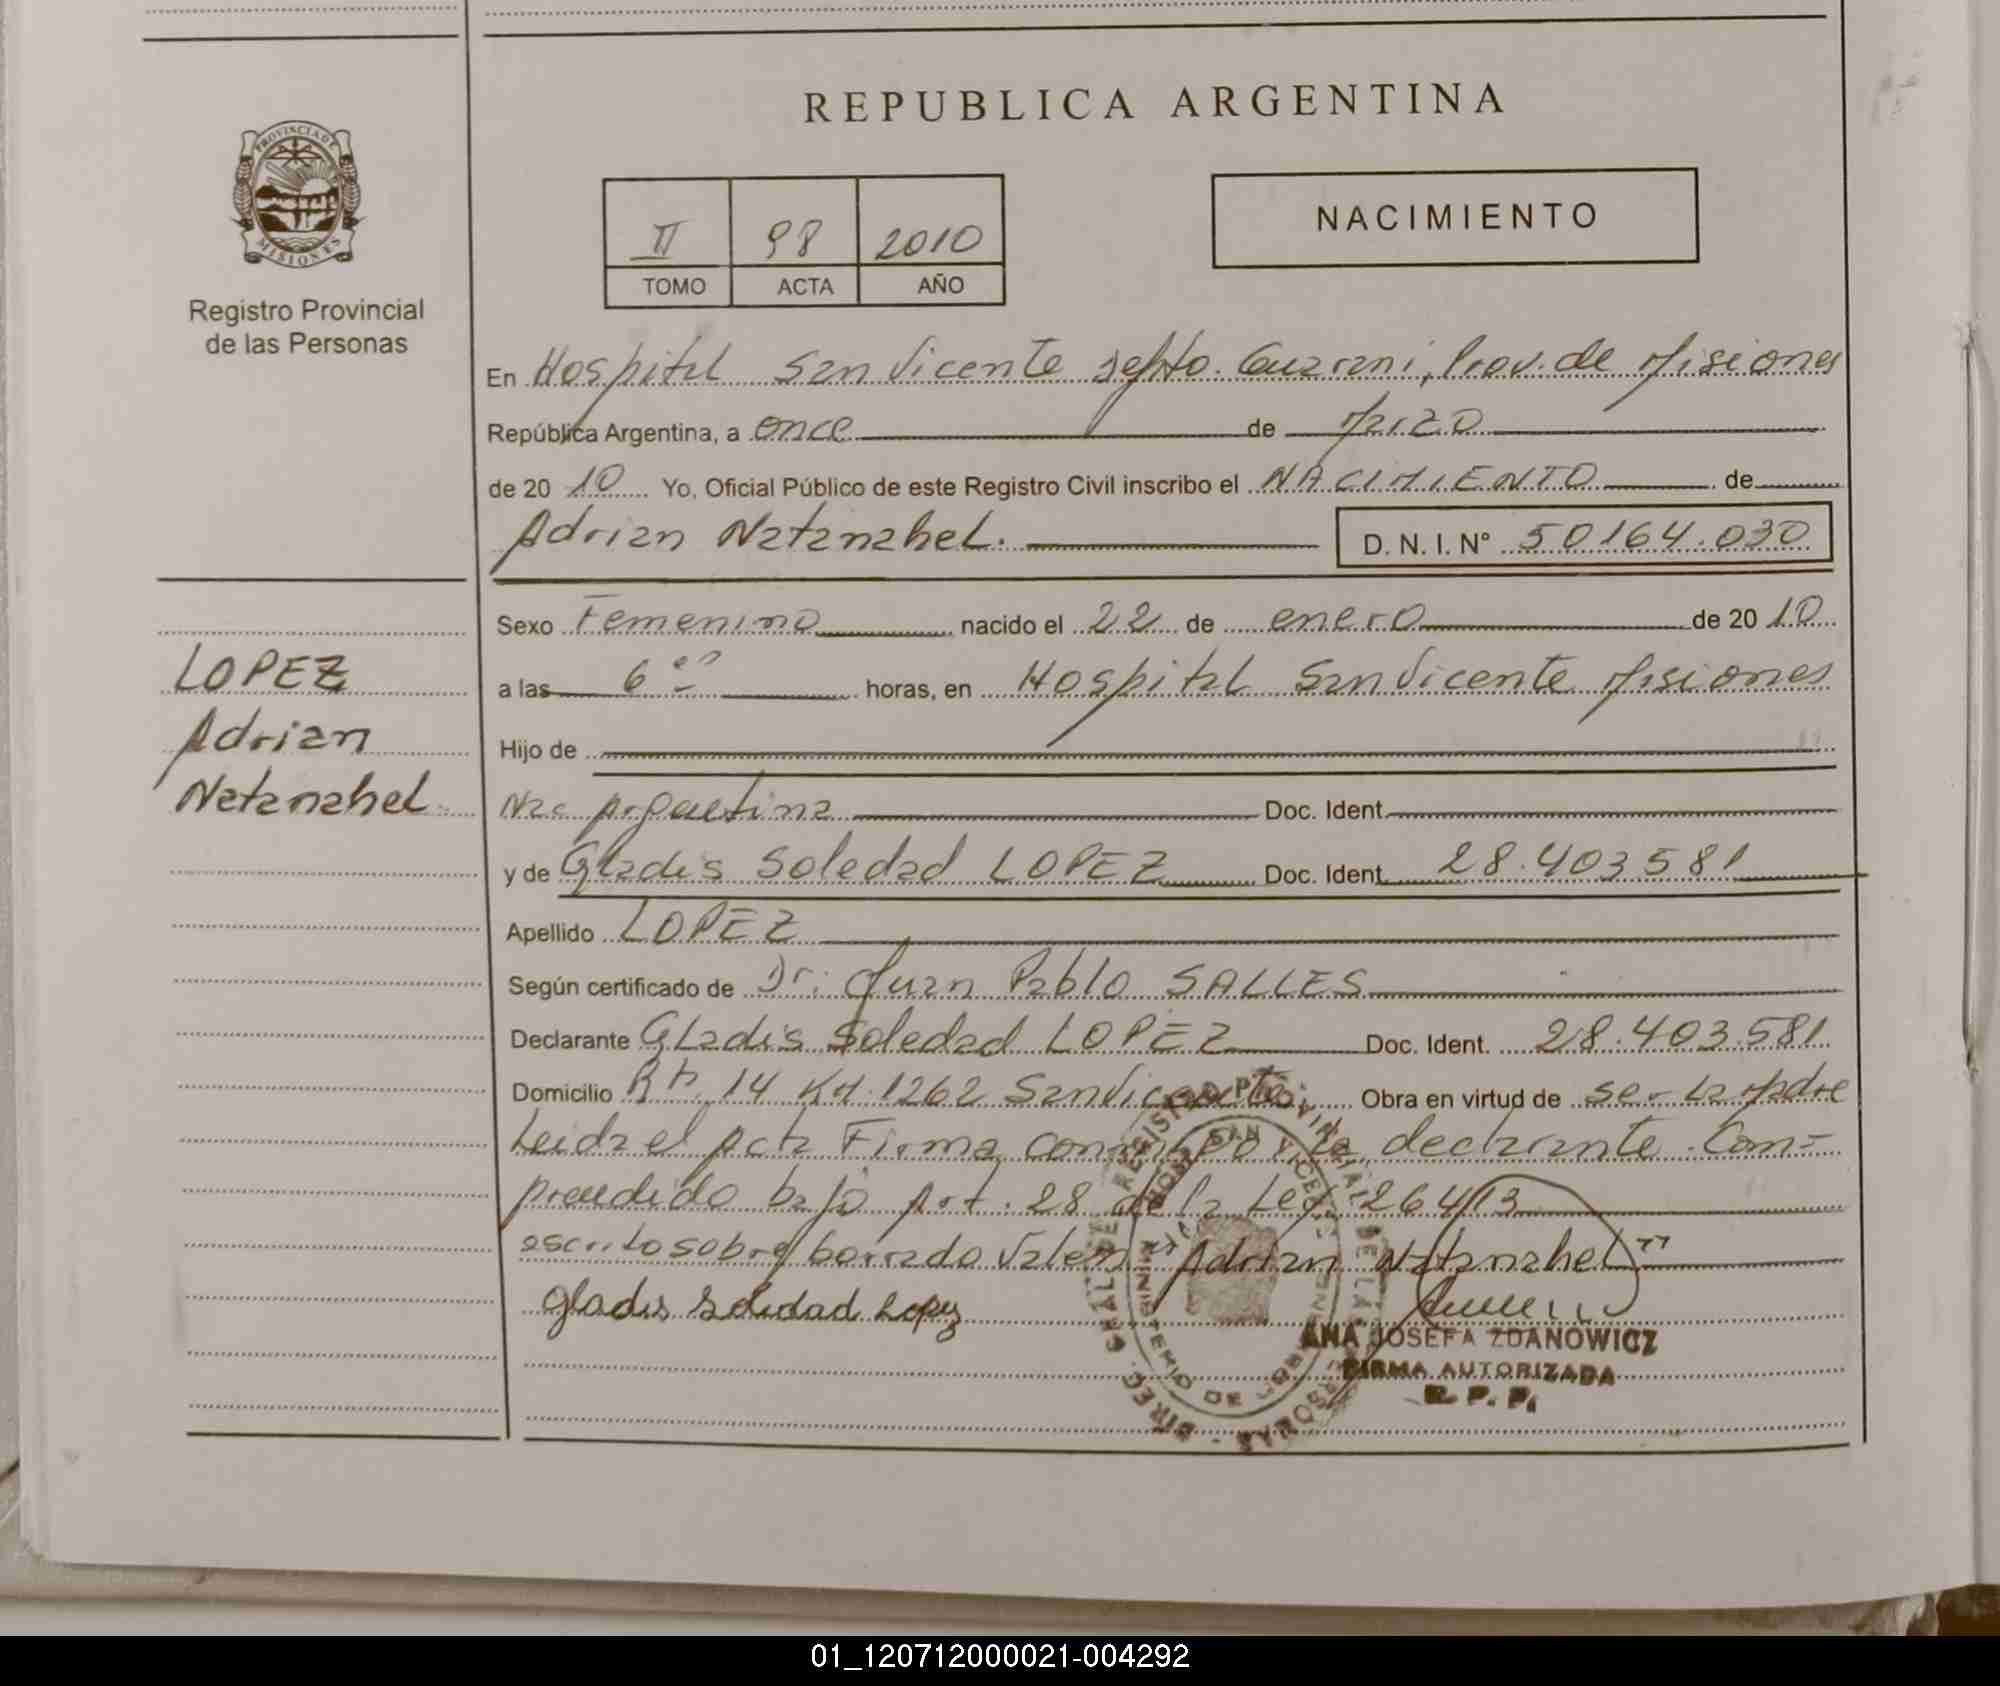 REPUBLICA ARGENTINA
PROVINCIA DE
MISIONES
Registro Provincial
de las Personas
II 98 2010
TOMO ACTA AÑO
NACIMIENTO
En Hospital San Vicente Depto. Guarani, Prov. de Misiones
República Argentina, a once de Marzo
de 2010 Yo, Oficial Público de este Registro Civil inscribo el NACIMIENTO de
Adrian Natanahel. D. N. I. N° 50164.030
Sexo Femenino nacido el 22 de enero de 2010
a las 6 horas, en Hospital San Vicente Misiones
Hijo de
Nac Argentina Doc. Ident.
y de Gladis Soledad LOPEZ Doc. Ident. 28.403.581
Apellido LOPEZ
Según certificado de Dr. Juan Pablo SALLES
Declarante Gladis Soledad LOPEZ Doc. Ident. 28.403.581
Domicilio Rta. 14 KM. 1262 San Vicente Obra en virtud de ser la Madre
Leida el acta Firma conmigo la declarante. Com=
prendido bajo Art. 28 de la Ley 26413
escrito sobre borrado Valen "Adrian Natanahel"
Gladis Soledad Lopez
LOPEZ
Adrian
Natanahel
ANA JOSEFA ZDANOWICZ
FIRMA AUTORIZADA
R. P. P.
01_120712000021-004292